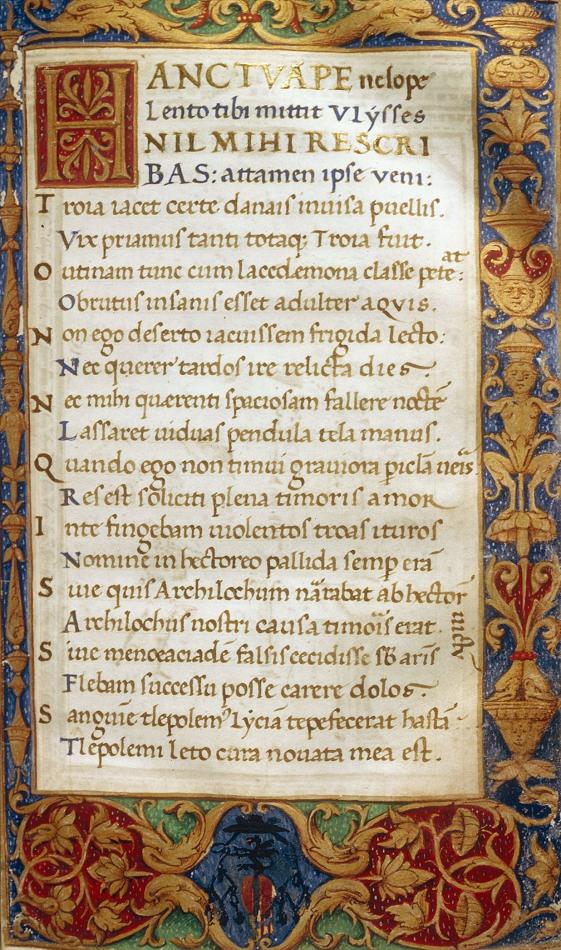 HANC TVA PE nelope
Lento tibi mittit Vlysses
NIL MIHI RESCRI
BAS: attamen ipse veni:
Troia iacet certe danais inuisa puellis.
Vix priamus tanti totaq; Troia fuit.
O utinam tunc cum lacedemona classe petebat:
Obrutus insanis esset adulter aqvis.
Non ego deserto iacuissem frigida lecto:
Nec querer tardos ire relicta dies
Nec mihi querenti spaciosam fallere noctē
Lassaret uiduas pendula tela manus.
Quando ego non timui grauiora picla ueris
Res est soliciti plena timoris amor
In te fingebam uiolentos troas ituros
Nomine in hectoreo pallida semp erā
Siue quis Archilochum narrabat ab hectore uictū
Archilochus nostri causa timoris erat.
Siue menoeciadē falsis cecidisse sb aris
Flebam successu posse carere dolos
Sanguie tlepolem9 lyciā tepefecerat hastā
Tlepolemi leto cura nouata mea est.